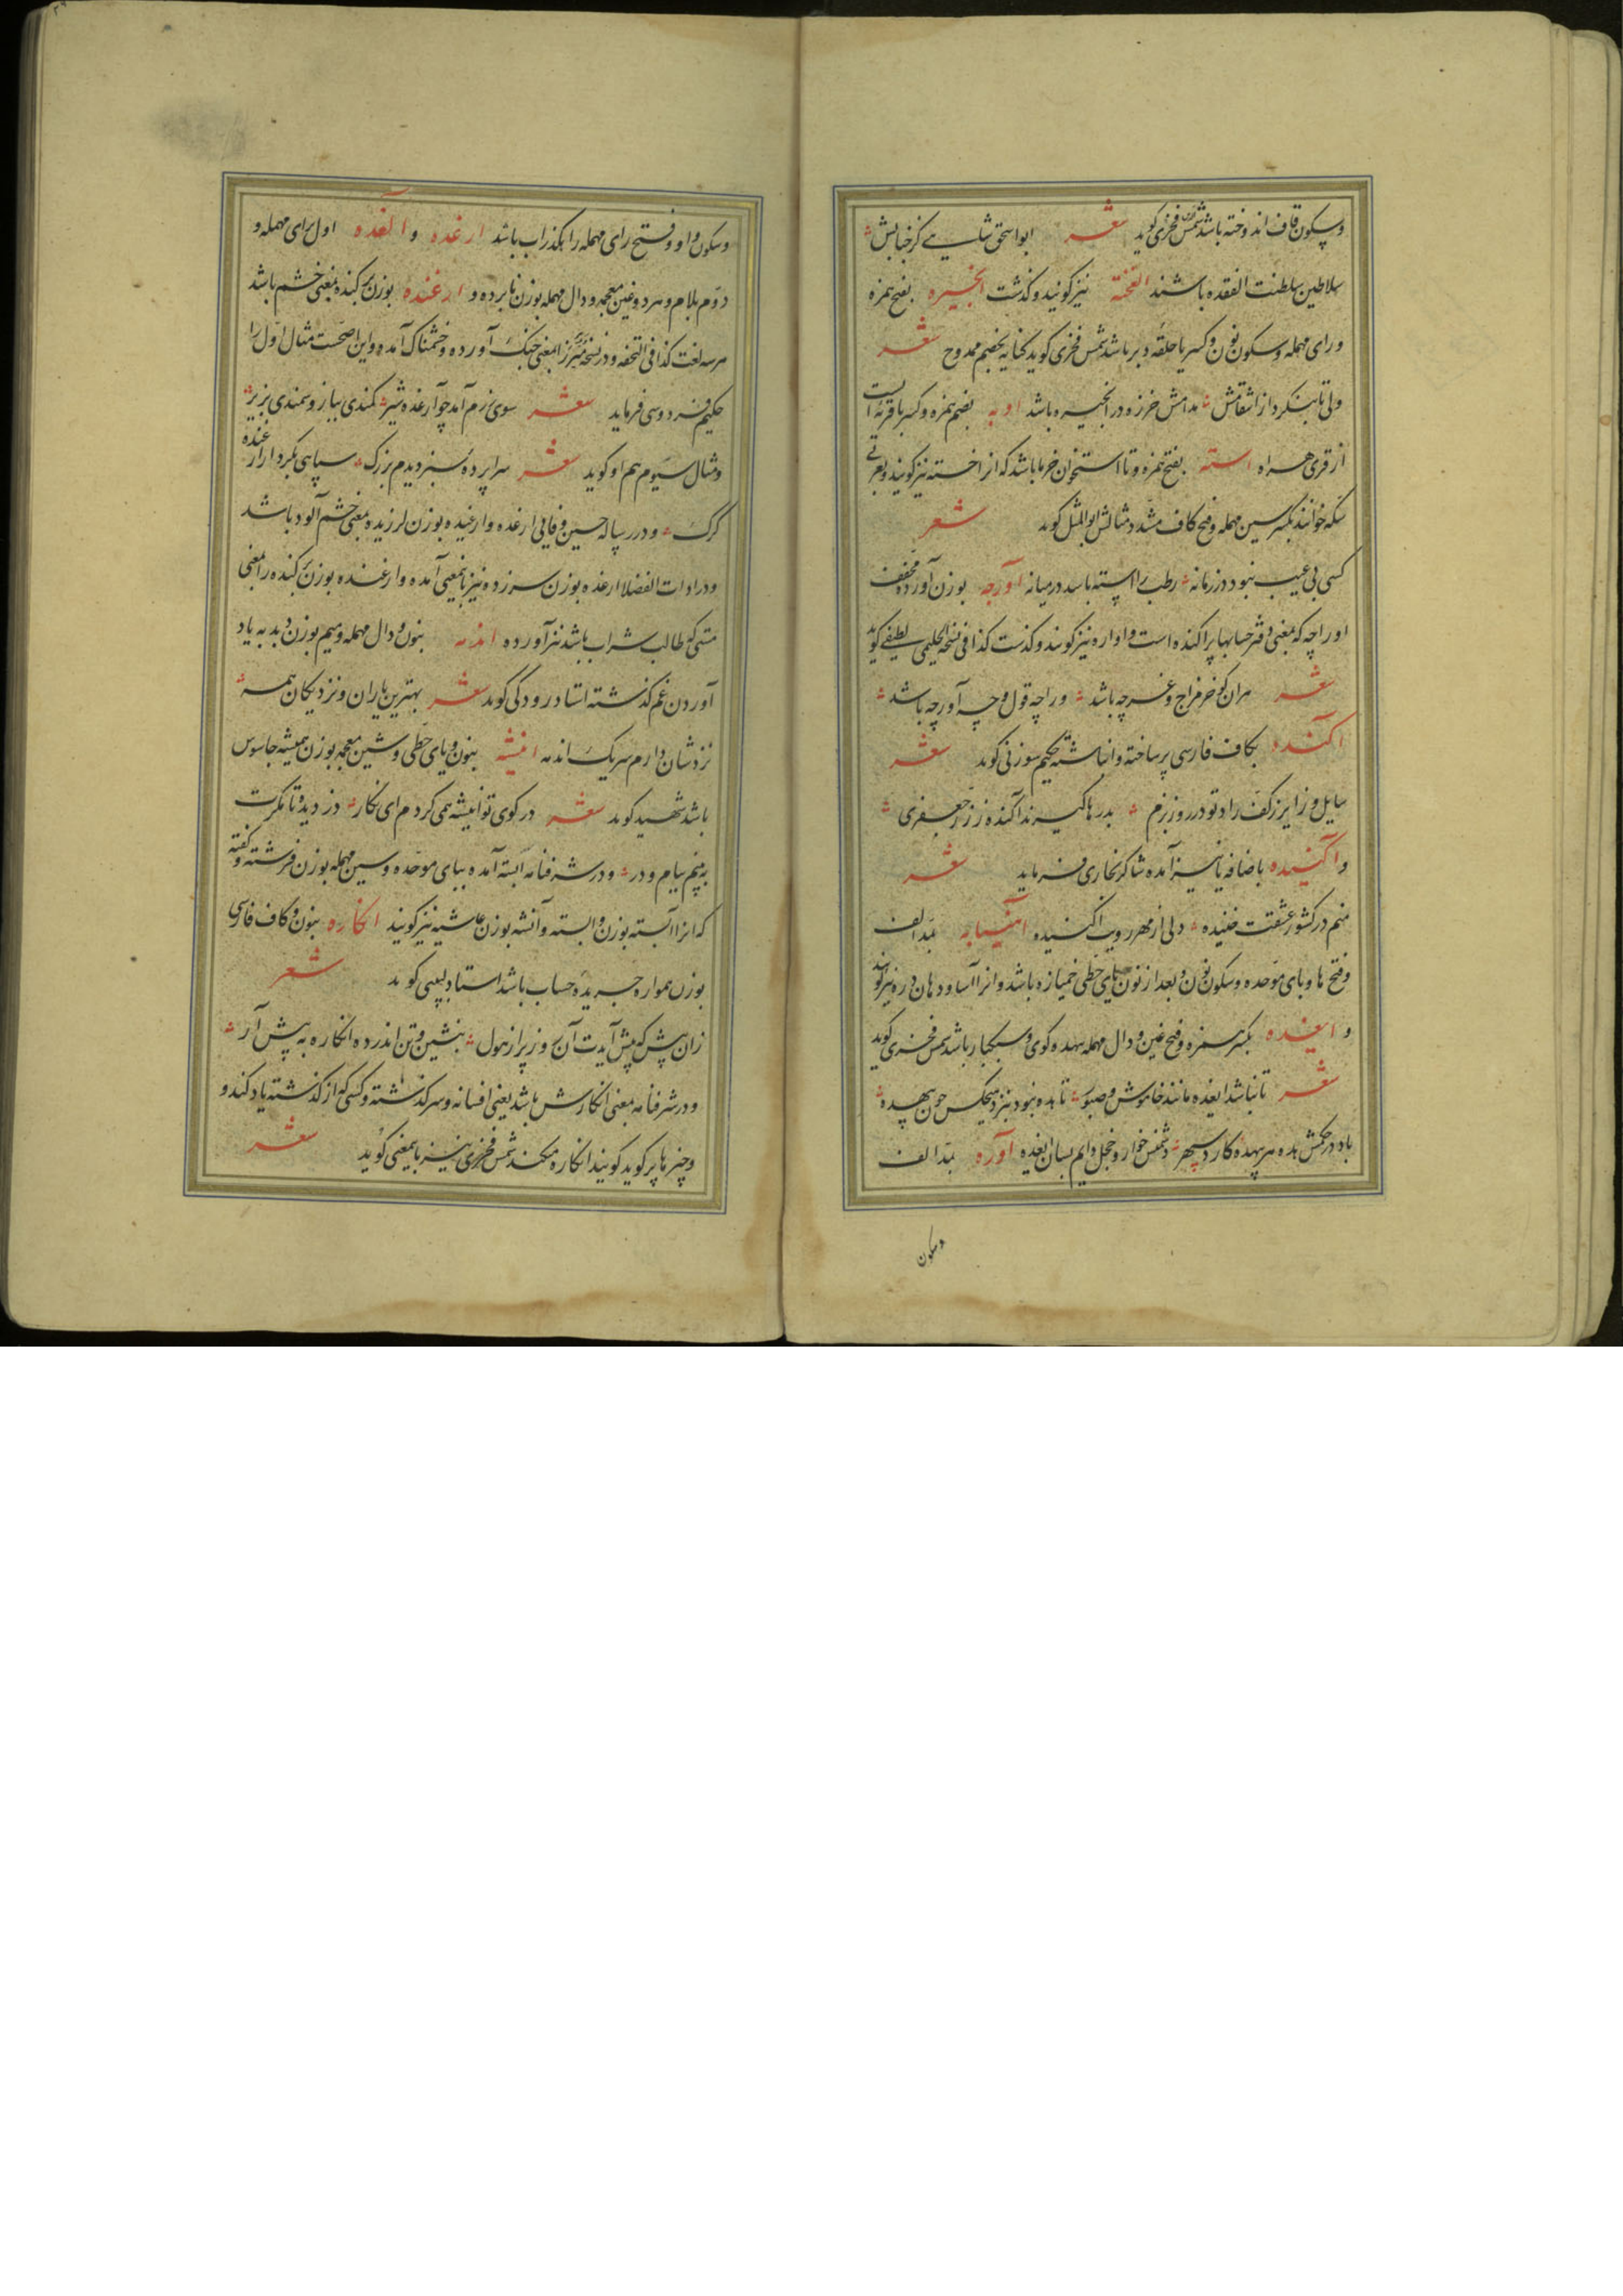 وسکون قاف اندوخته باشد شمس فخری گوید شعر ابواسحق شاهی کز جنابش
سلاطین سلطنت الفقده باشند الفخته نیز گویند و گذشت انجیره بفتح همزه
و رای مهمله و سکون نون و کسر یا حلقه دبر باشد شمس فخری گوید کنایه بخصم ممدوح شعر
ولی تا بنگرد از اشقامش مدامش خرزه در انجیره باشد اوبه بضم همزه و کسر با قریه ایست
از قری هراه استه بفتح همزه و تا استخوان خرما باشد که انرا خسته نیز گویند و بعربی
سکه خوانند بکسر سین مهمله و فتح کاف مشدد مثالش ابوالمثل گوید شعر
کسی بی عیب نبود در زمانه رطب را استه باشد در میانه آورجه بوزن آورده مخفف
اوراجه که بمعنی دفتر حسابها پراکنده است و اواره نیز گویند و گذشت کذا فی نسخة الحلیمی لطیفی گوید
شعر هران کو خر مزاج و غرچه باشد وراچه قول و چه آورجه باشد
آکنده بکاف فارسی پر ساخته و انباشته حکیم سوزنی گوید شعر
سایل و زایر ز کف راد تو در روز بزم بدرها گیرند آکنده ز زر جعفری
و آکنیده باضافه یا نیز آمده شاکر بخاری فرماید شعر
منم در کشور عشقت خنیده دلی از مهر رویت آکنیده آهنیابه بمد الف
و فتح ها و بای موحده و سکون نون و بعد از نون یای حطی خمیازه باشد و انرا آسا و دهان دره نیز گویند
و ایغده بکسر همزه و فتح غین و دال مهمله بیهده گوی و سبکسار باشد شمس فخری گوید
شعر تا نباشد ایغده مانند خاموش و صبور تا بده نبود بنزد هیچکس چون بیهده
باد در حکمش بده هر بیهده کار سپهر دشمنش خوار و خجل دایم بسان ایغده آوره بمد الف
وسکون
وسکون واو و فتح رای مهمله راهگذر آب باشد ارغده و آلغده اول برای مهمله و
دوم بلام و هر دو بغین معجمه و دال مهمله بوزن نابرده و ارغنده بوزن پرکنده بمعنی خشم باشد
هر سه لغت کذا فی التحفه و در نسخه میرزا بمعنی جنگ آورده و خشمناک آمده و این اصحست مثال اول را
حکیم فردوسی فرماید شعر سوی رزم آمد چو آرغده شیر کمندی ببازو سمندی بزیر
و مثال سیوم هم او گوید شعر سراپرده سبز دیدم بزرگ سپاهی بکردار ارغنده
گرگ و در رساله حسین وفایی ارغده و ارغیده بوزن لرزیده بمعنی خشم آلود باشد
و در ادات الفضلا ارغده بوزن سرزده نیز باینمعنی آمده و ارغنده بوزن پرکنده را بمعنی
مستی که طالب شراب باشد نیز آورده اندمه بنون و دال مهمله و میم بوزن دبدبه یاد
آوردن غم گذشته استاد رودکی گوید شعر بهترین یاران و نزدیکان همه
نزدشان دارم هر یک اندمه انیشه بنون و یای حطی و شین معجمه بوزن همیشه جاسوس
باشد شهید گوید شعر در کوی تو انیشه همی گردم ای نگار دزدیده تا مگرت
به بینم ببام و در و در شرفنامه آبسته آمده ببای موحده و سین مهمله بوزن فرشته و گفته
که انرا آبسته بوزن وابسته و آنشه بوزن عایشه نیز گویند انکاره بنون و کاف فارسی
بوزن همواره جریده حساب باشد استاد لبیبی گوید شعر
زان پیش که پیش آیدت آن روز پر از هول بنشین و تن اندر ده انکاره به پیش آر
و در شرفنامه بمعنی انکارش باشد یعنی افسانه و سرگذشته و کسی که از گذشته یاد کند و
و چیزها پر گوید گویند انکاره میکند شمس فخری نیز باینمعنی گوید شعر